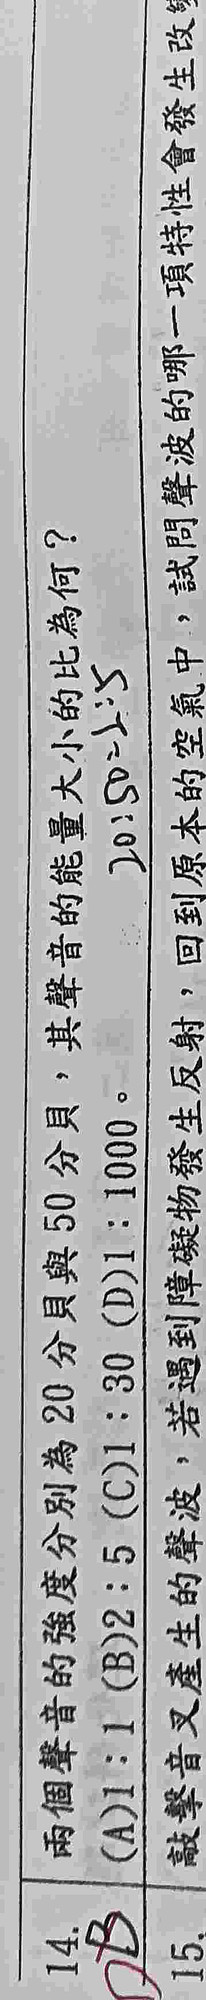 14. 兩個聲音的強度分別為 20 分貝與 50 分貝，其聲音的能量大小的比為何？
B (A)1：1 (B)2：5 (C)1：30 (D)1：1000。 20:50=2:5
15. 敲擊音叉產生的聲波，若遇到障礙物發生反射，回到原本的空氣中，試問聲波的哪一項特性會發生改